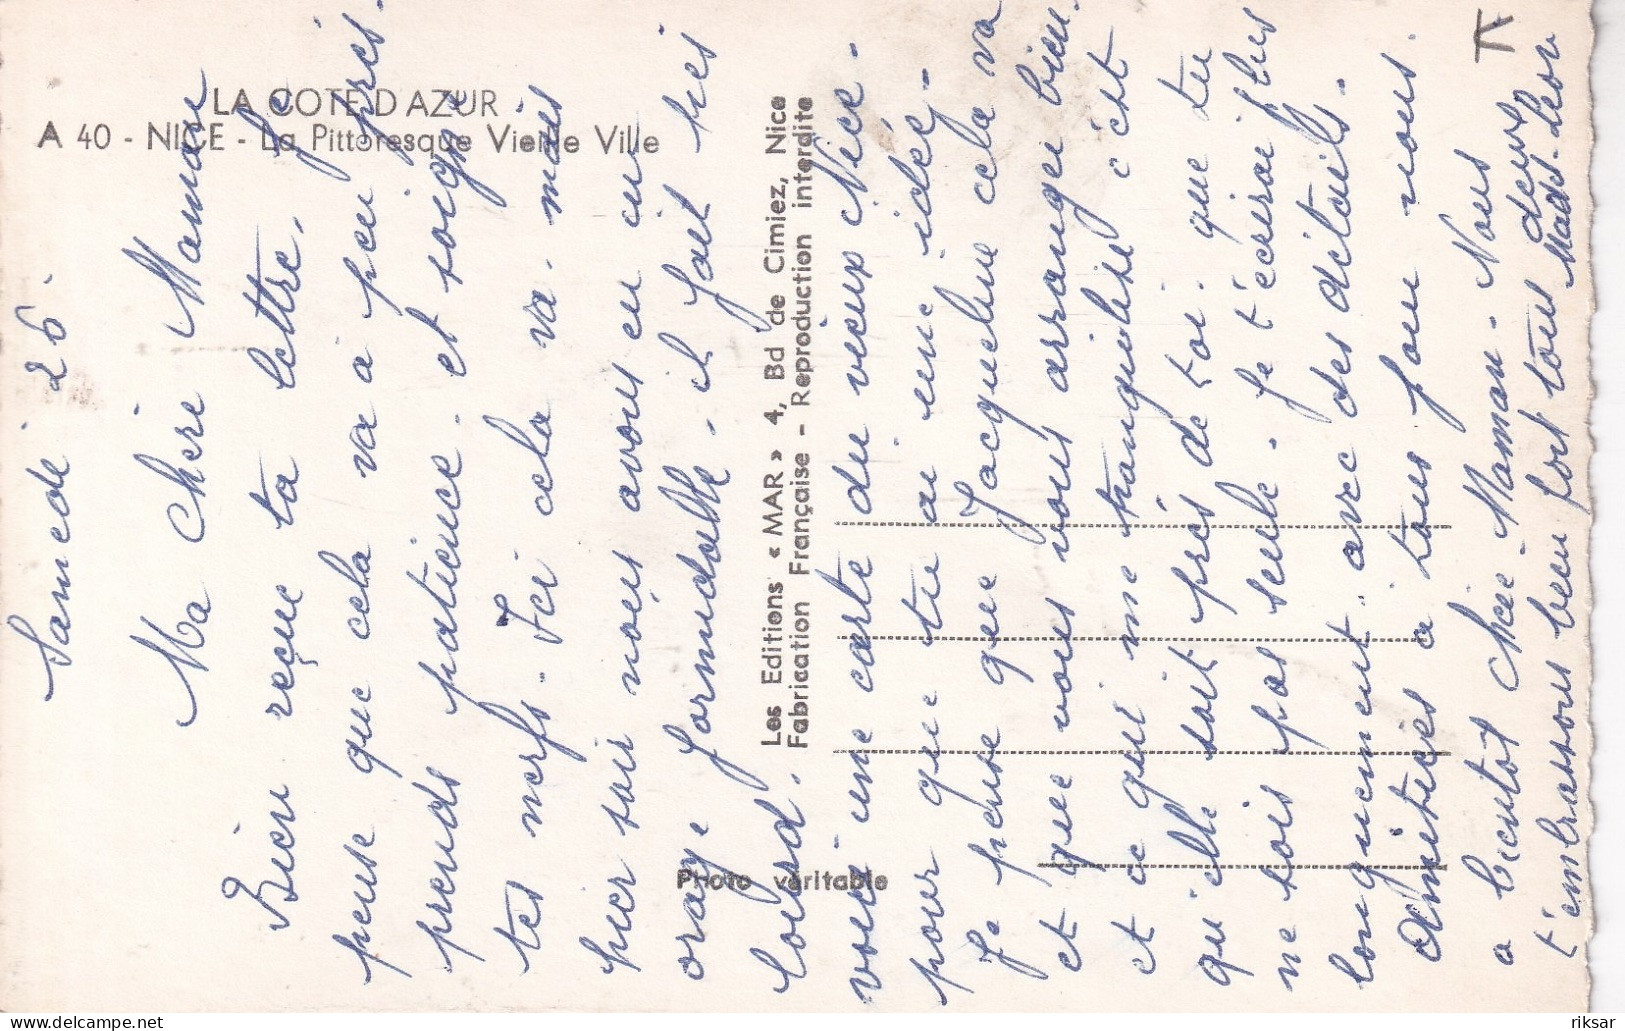 LA COTE D'AZUR
A 40 - NICE - La Pittoresque Vieille Ville
Les Editions « MAR » 4, Bd de Cimiez, Nice
Fabrication Française - Reproduction interdite
Photo véritable
Samedi 26.
Ma Chère Maman
Bien reçue ta lettre, je
pense que cela va à peu près.
prends patience. et soigne
tes nerfs. Ici cela va. mais
hier soir nous avons eu un
orage formidable. il fait très
lourd.
voici une carte du vieux Nice.
pour que tu ai une idée.
Je pense que Jacqueline cela va
et que vous vous arrangez bien.
et ce qui me tranquilise c'est
qu'elle soit près de toi. que tu
ne sois pas seule. Je t'écrirai plus
longuement. avec des détails.
Amitiés à tous pour nous.
a bientot Chère Maman. Nous
t'embrassons bien fort tous deux
Mads. Léon
riksar
delcampe.net